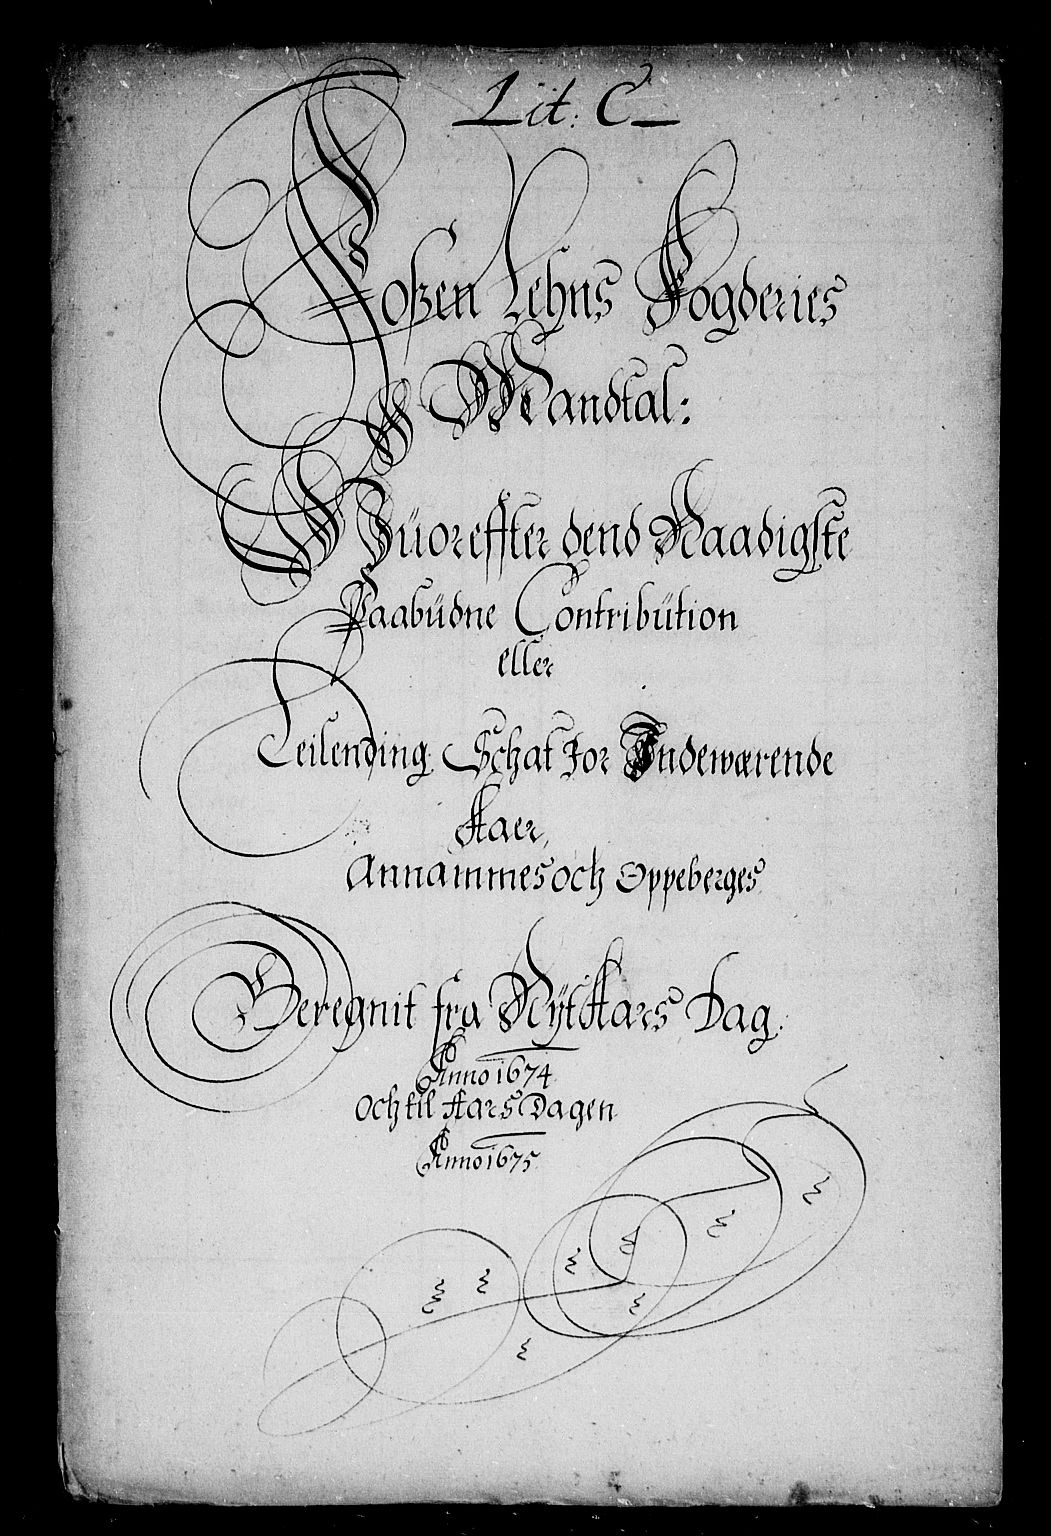 Lit: C
Foßen Lehns Fogderies
Mandtal:
Hüoreffter dend Naadigste
Paabüdne Contribütion
eller
Leilending Schat for Indewærende
Aaer,
Annammes och Oppeberges
Beregnit fra Nyt Aars Dag
Anno 1674
Och til Aars Dagen
Anno 1675